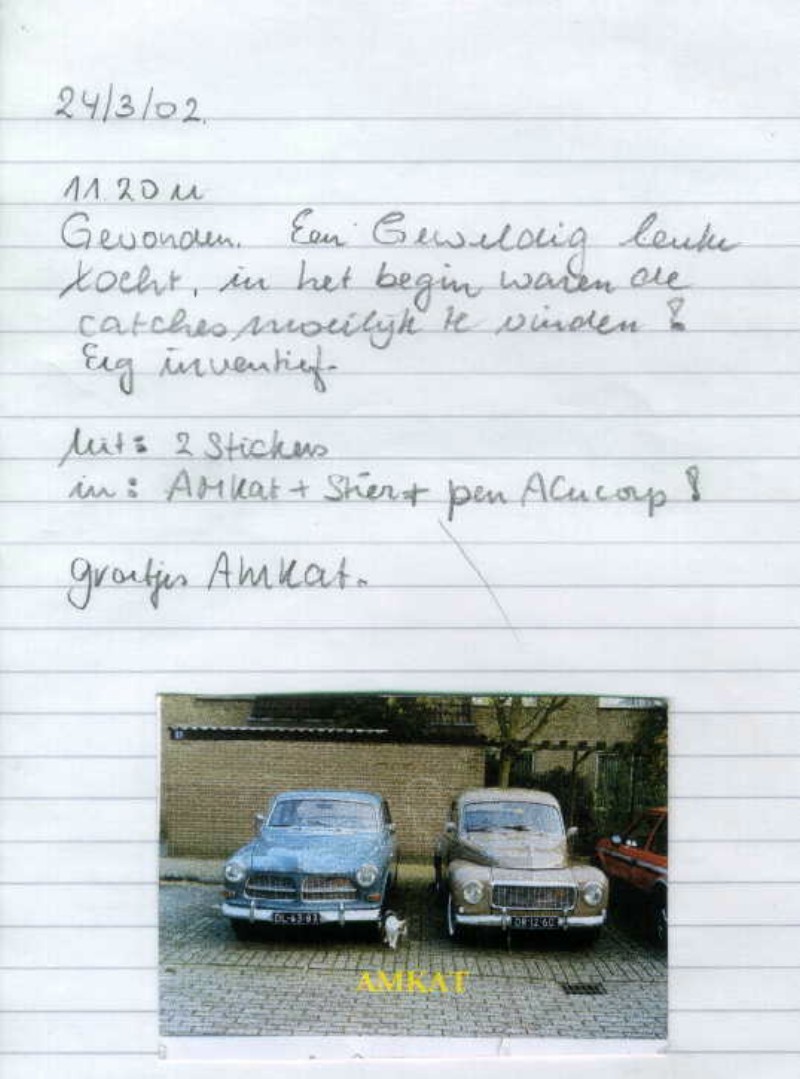 24/3/02.
11.20 u
Gevonden. Een Geweldig leuke
tocht, in het begin waren de
catches moeilijk te vinden!
Erg inventief.
Uit: 2 Stickers
in: AMKat + Stier + pen ACucorp!
groetjes AMKat.
DL-63-83
DR-12-60
AMKAT